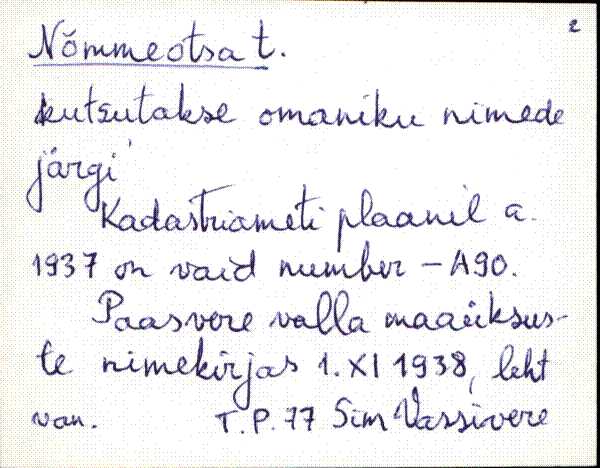 2
Nõmmeotsa t.
kutsutakse omaniku nimede
järgi
Kadastriameti plaanil a.
1937 on vaid number – A90.
Paasvere valla maaüksus-
te nimekirjas 1. XI 1938, leht
van. T.P. 77 Sim Vassivere